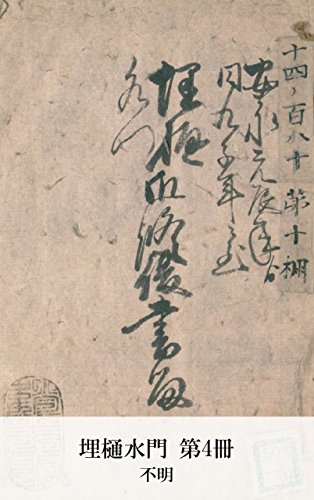 十四ノ百八十 第十棚
安永元辰年ゟ
同九子年迄
埋樋御修復書留
水門
埋樋水門 第4冊
不明